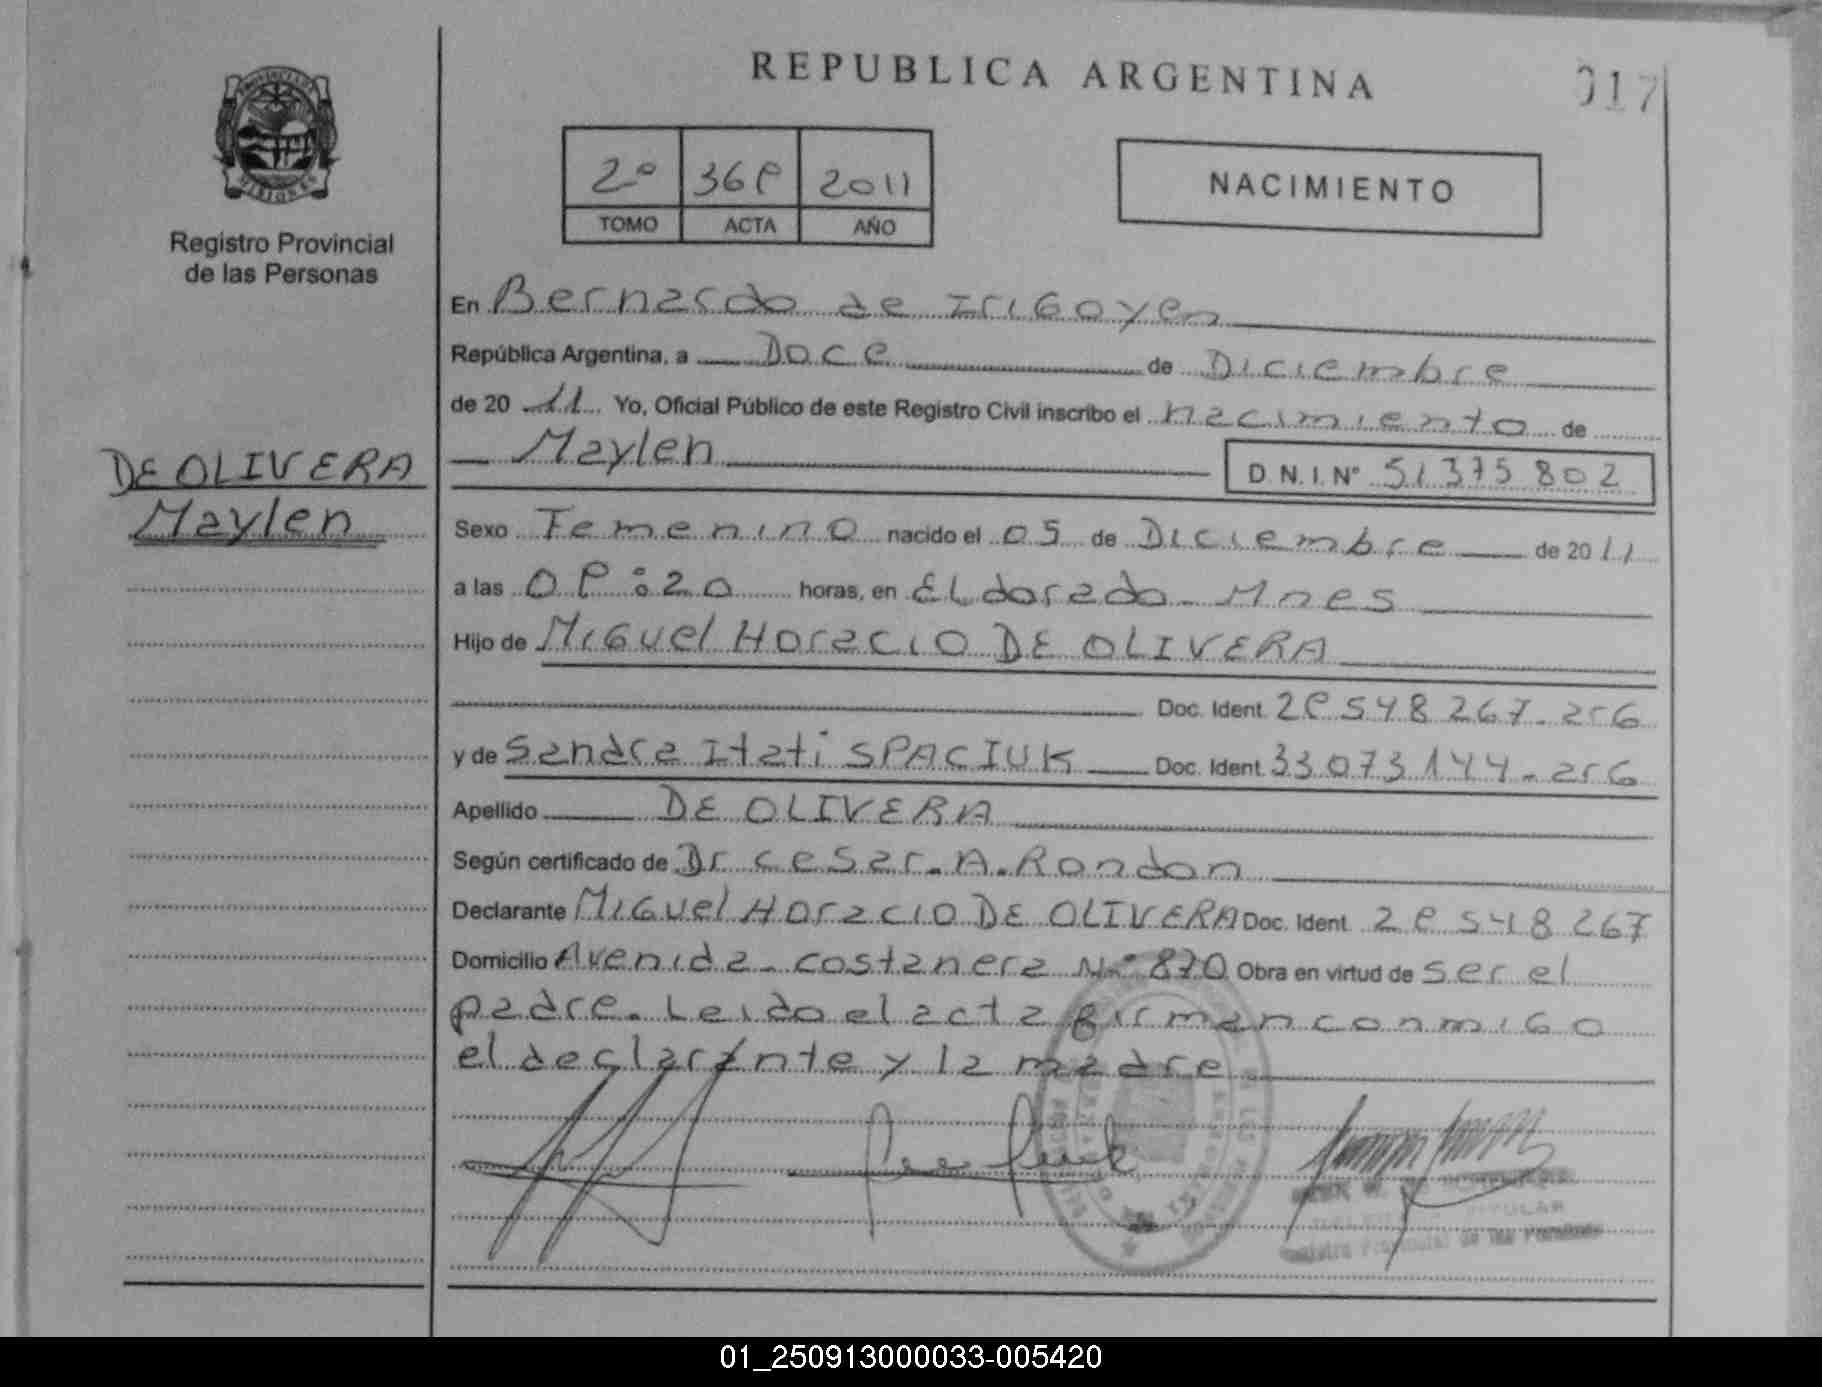 REPUBLICA ARGENTINA
017
PROVINCIA DE
MISIONES
Registro Provincial
de las Personas
2º 369 2011
TOMO ACTA AÑO
NACIMIENTO
En Bernardo de Irigoyen
República Argentina, a Doce de Diciembre
de 20 11 Yo, Oficial Público de este Registro Civil inscribo el nacimiento de
Maylen D.N.I.Nº 51375802
DE OLIVERA
Maylen
Sexo Femenino nacido el 05 de Diciembre de 2011
a las 09:20 horas, en Eldorado - Mnes
Hijo de Miguel Horacio DE OLIVERA
Doc. Ident. 29548267-arg
y de Sandra Itati SPACIUK Doc. Ident. 33073144-arg
Apellido DE OLIVERA
Según certificado de Dr Cesar. A. Rondon
Declarante Miguel Horacio DE OLIVERA Doc. Ident. 29548267
Domicilio Avenida - costanera Nº 870 Obra en virtud de ser el
padre. Leido el acta firman conmigo
el declarante y la madre
TITULAR
Registro Provincial de las Personas
01_250913000033-005420